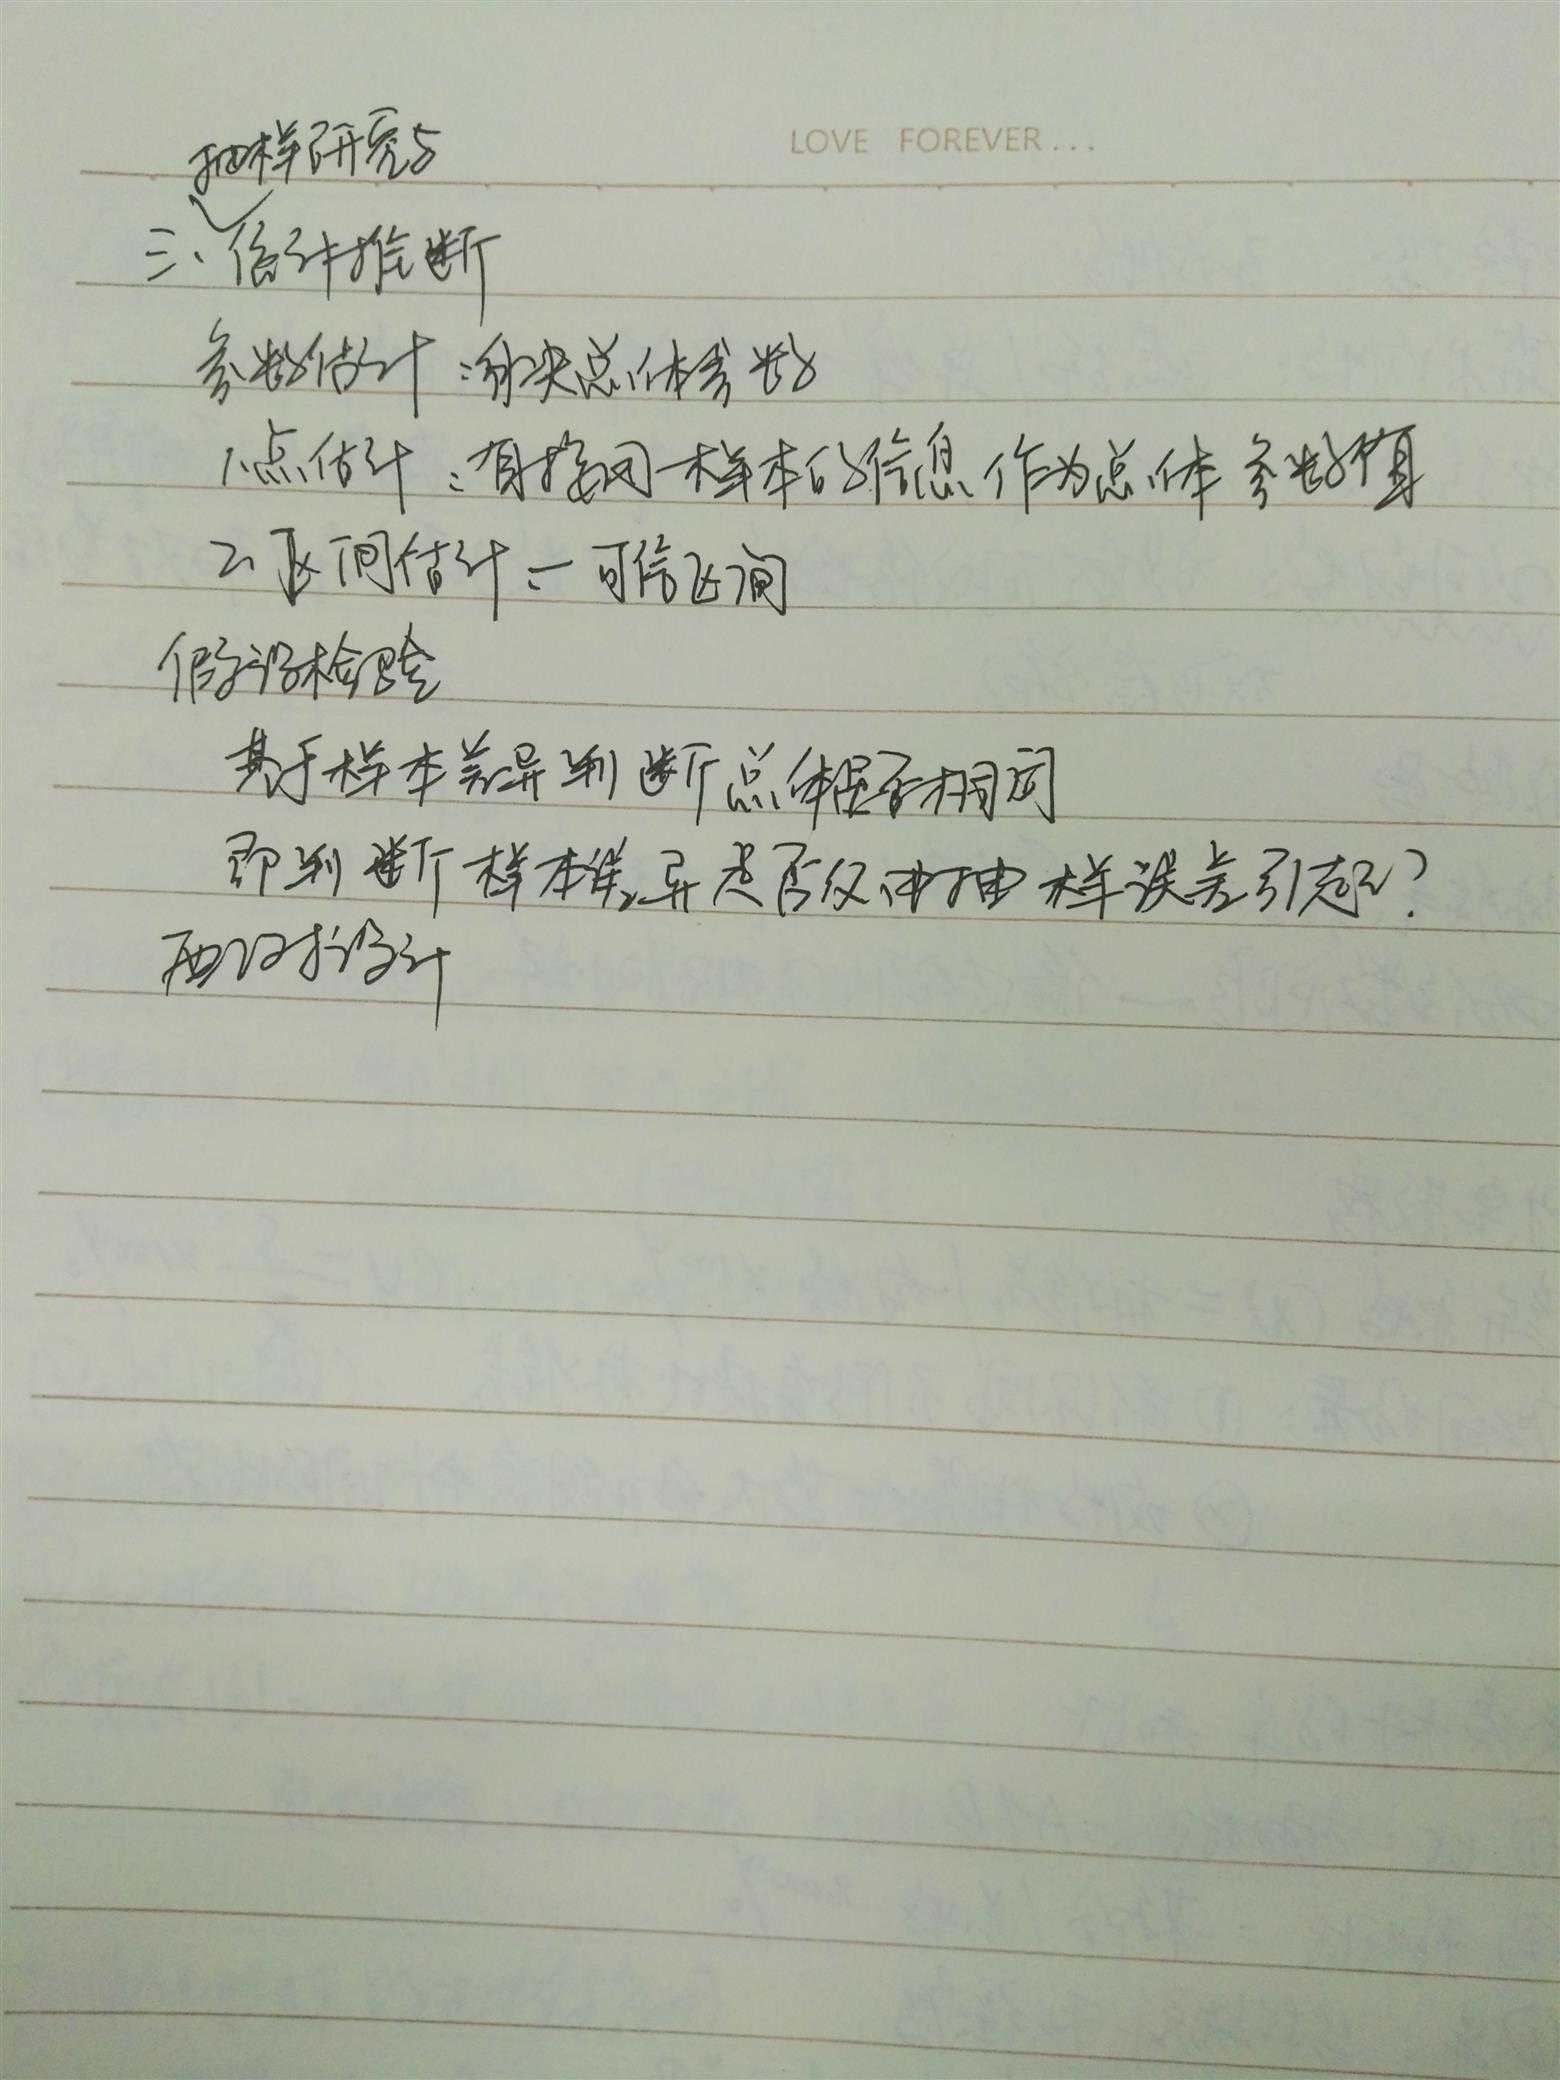 LOVE FOREVER...
抽样研究与
三、估计推断
参数估计：解决总体参数
1、点估计：直接用样本的信息作为总体参数值
2、区间估计：一可信区间
假设检验
基于样本差异判断总体是否相同
即判断样本差异是否仅由抽样误差引起？
配对设计